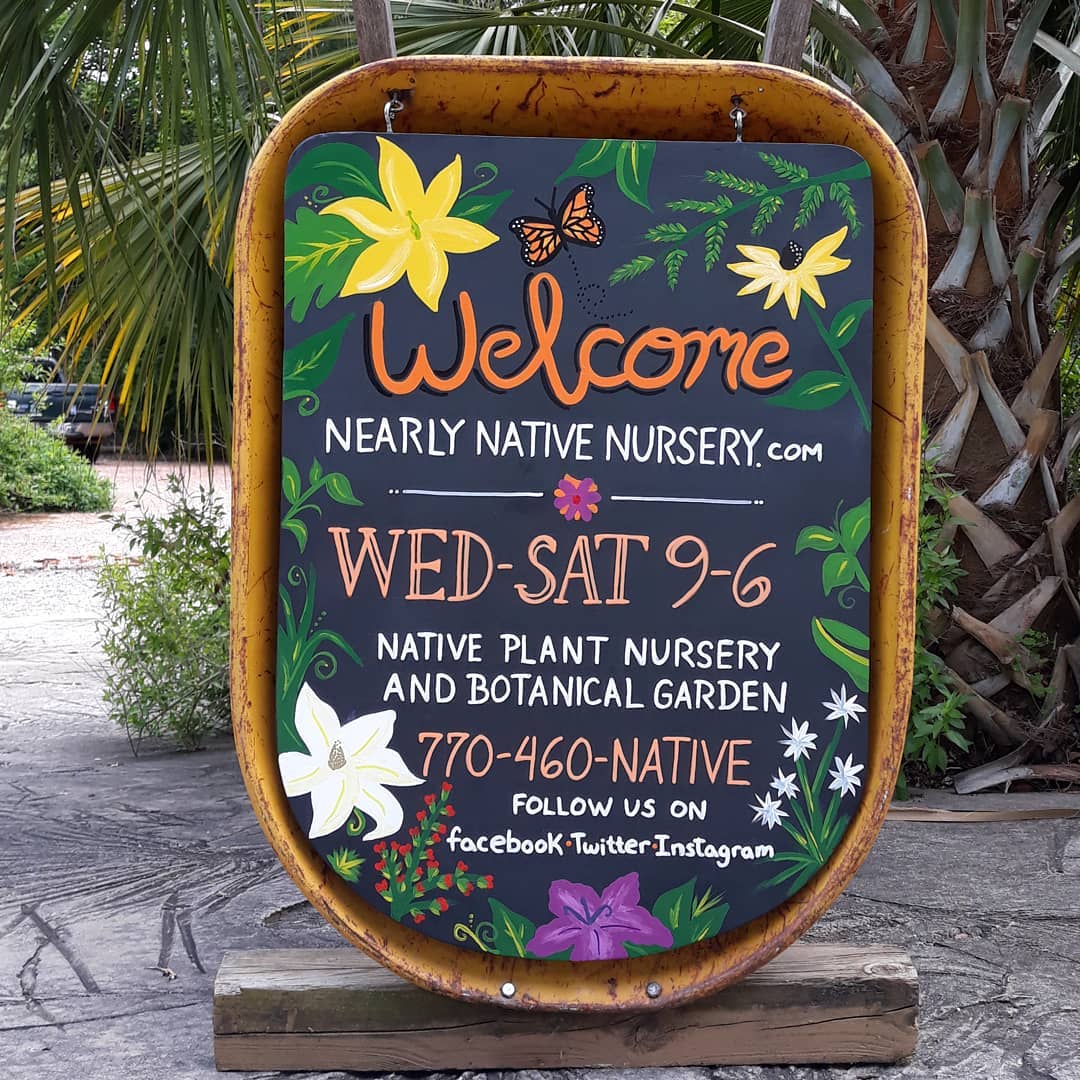 Welcome
NEARLY NATIVE NURSERY.com
WED-SAT 9-6
NATIVE PLANT NURSERY
AND BOTANICAL GARDEN
770-460-NATIVE
FOLLOW US ON
facebook·Twitter·Instagram